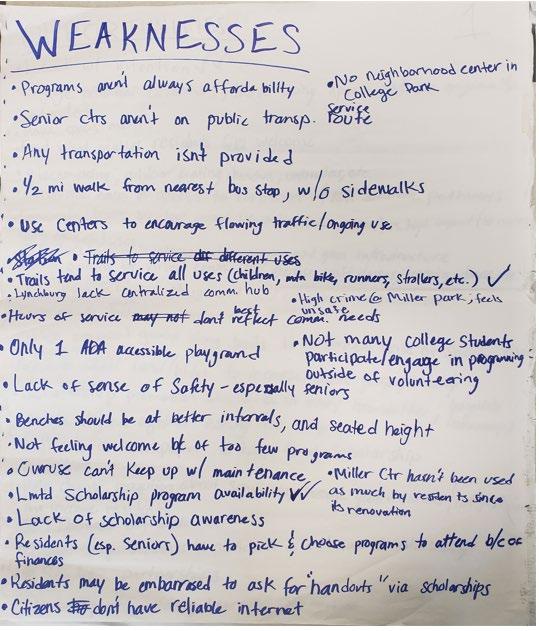 WEAKNESSES
• Programs aren't always affordability
• No neighborhood center in
College Park
• Senior ctrs aren't on public transp. service route
• Any transportation isn't provided
• 1/2 mi walk from nearest bus stop, w/o sidewalks
• Use Centers to encourage flowing traffic/ongoing use
• Trails to service diff different uses
• Trails tend to service all uses (children, mtn bike, runners, strollers, etc.) ✓
• Lynchburg lack centralized comm. hub
• High crime @ Miller park, feels
unsafe
• Hours of service may not don't best reflect comm. needs
• Only 1 ADA accessible playground
• Not many college students
participate/engage in programming
outside of volunteering
• Lack of sense of Safety - especially seniors
• Benches should be at better intervals, and seated height
• Not feeling welcome b/c of too few programs
• Overuse can't keep up w/ maintenance
• Miller Ctr hasn't been used
as much by residents since
its renovation
• Lmtd Scholarship program availability ✓✓
• Lack of scholarship awareness
• Residents (esp. Seniors) have to pick & choose programs to attend b/c of
finances
• Residents may be embarrased to ask for "handouts" via scholarships
• Citizens don't have reliable internet